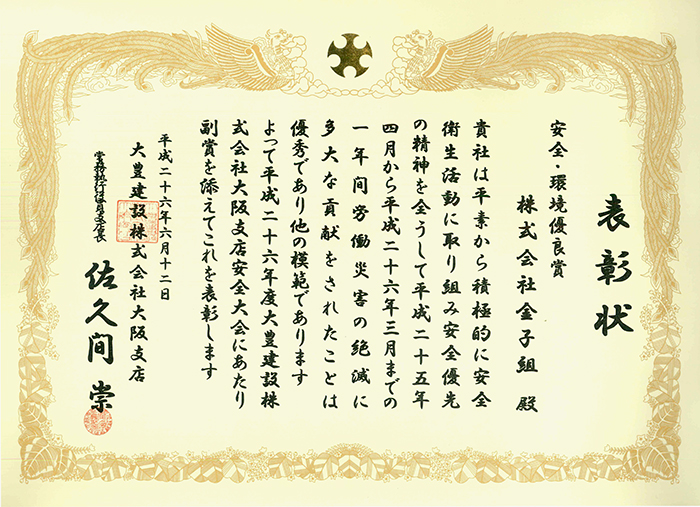 表彰状
安全・環境優良賞
株式会社金子組 殿
貴社は平素から積極的に安全
衛生活動に取り組み安全優先
の精神を全うして平成二十五年
四月から平成二十六年三月までの
一年間労働災害の絶滅に
多大な貢献をされたことは
優秀であり他の模範であります
よって平成二十六年度大豊建設株
式会社大阪支店安全大会にあたり
副賞を添えてこれを表彰します
平成二十六年六月十二日
大豊建設株式会社大阪支店
常務執行役員支店長
佐久間 崇